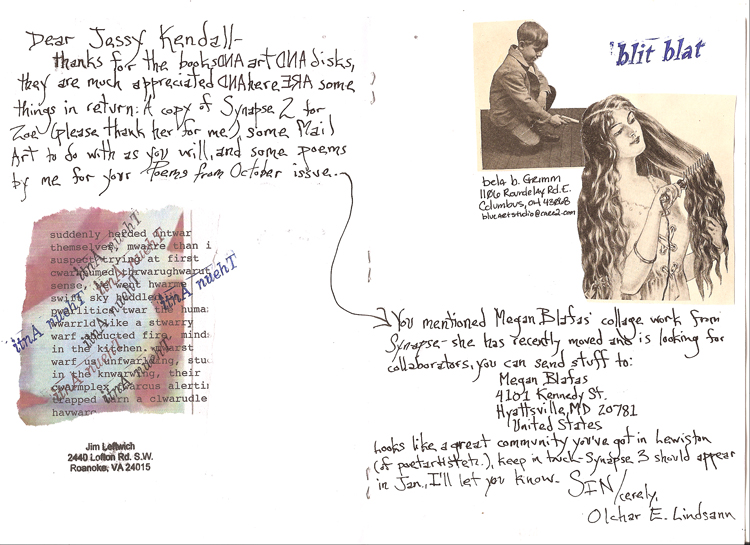 Dear Jassy Kendall-
thanks for the books AND art AND disks,
they are much appreciated AND here ARE some
things in return: A copy of Synapse 2 for
Zoe (please thank her for me), some Mail
Art to do with as you will, and some poems
by me for your Poems from October issue.
suddenly herded intwar
themselves, mwarre than i
suspect trying at first
sense,
went hwarme
swift sky huddled
pwarlitics twar the human
kwarrld like a stwarry
warf abducted fire, minds
in the kitchen.
warf us unfwarling, stud
in the knwarwing, their
swarmplex, carcus alertin
trapped warn a clwarudle
havwarc
Theun Anti
Theun Anti
Theun Anti
Theun Anti
Theun Anti
Theun Anti
Jim Leftwich
2440 Lofton Rd. S.W.
Roanoke, VA 24015
blit blat
bela b. Grimm
1106 Roundelay Rd. E.
Columbus, OH 43068
You mentioned Megan Blafas' collage work from
Synapse - she has recently moved and is looking for
collaborators, you can send stuff to:
Megan Blafas
4101 Kennedy St.
Hyattsville, MD 20781
United States
Looks like a great community you've got in Lewiston
(of poetartistetc.), keep in touch - Synapse 3 should appear
in Jan., I'll let you know. SIN/
cerely,
Olchar E. Lindsann